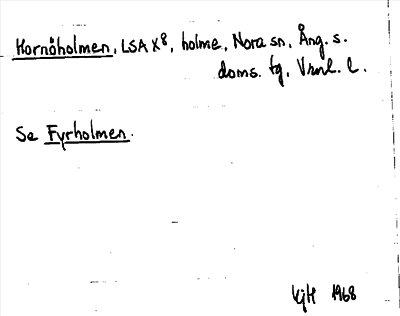 Kornöholmen, LSA X8, holme, Nora sn, Ång. s.
doms. tg, Vrml. l.
Se Fyrholmen.
KjH 1968